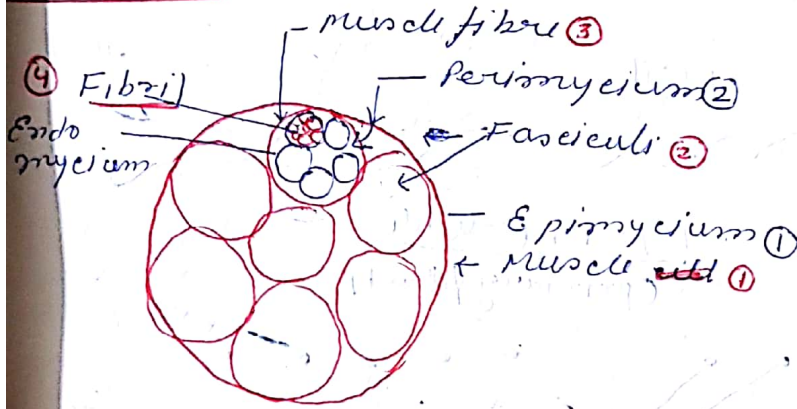 Muscle fibre ③
④ Fibril
Perimycium ②
Endo
mycium
Fasciculi ②
Epimycium ①
Muscle ①